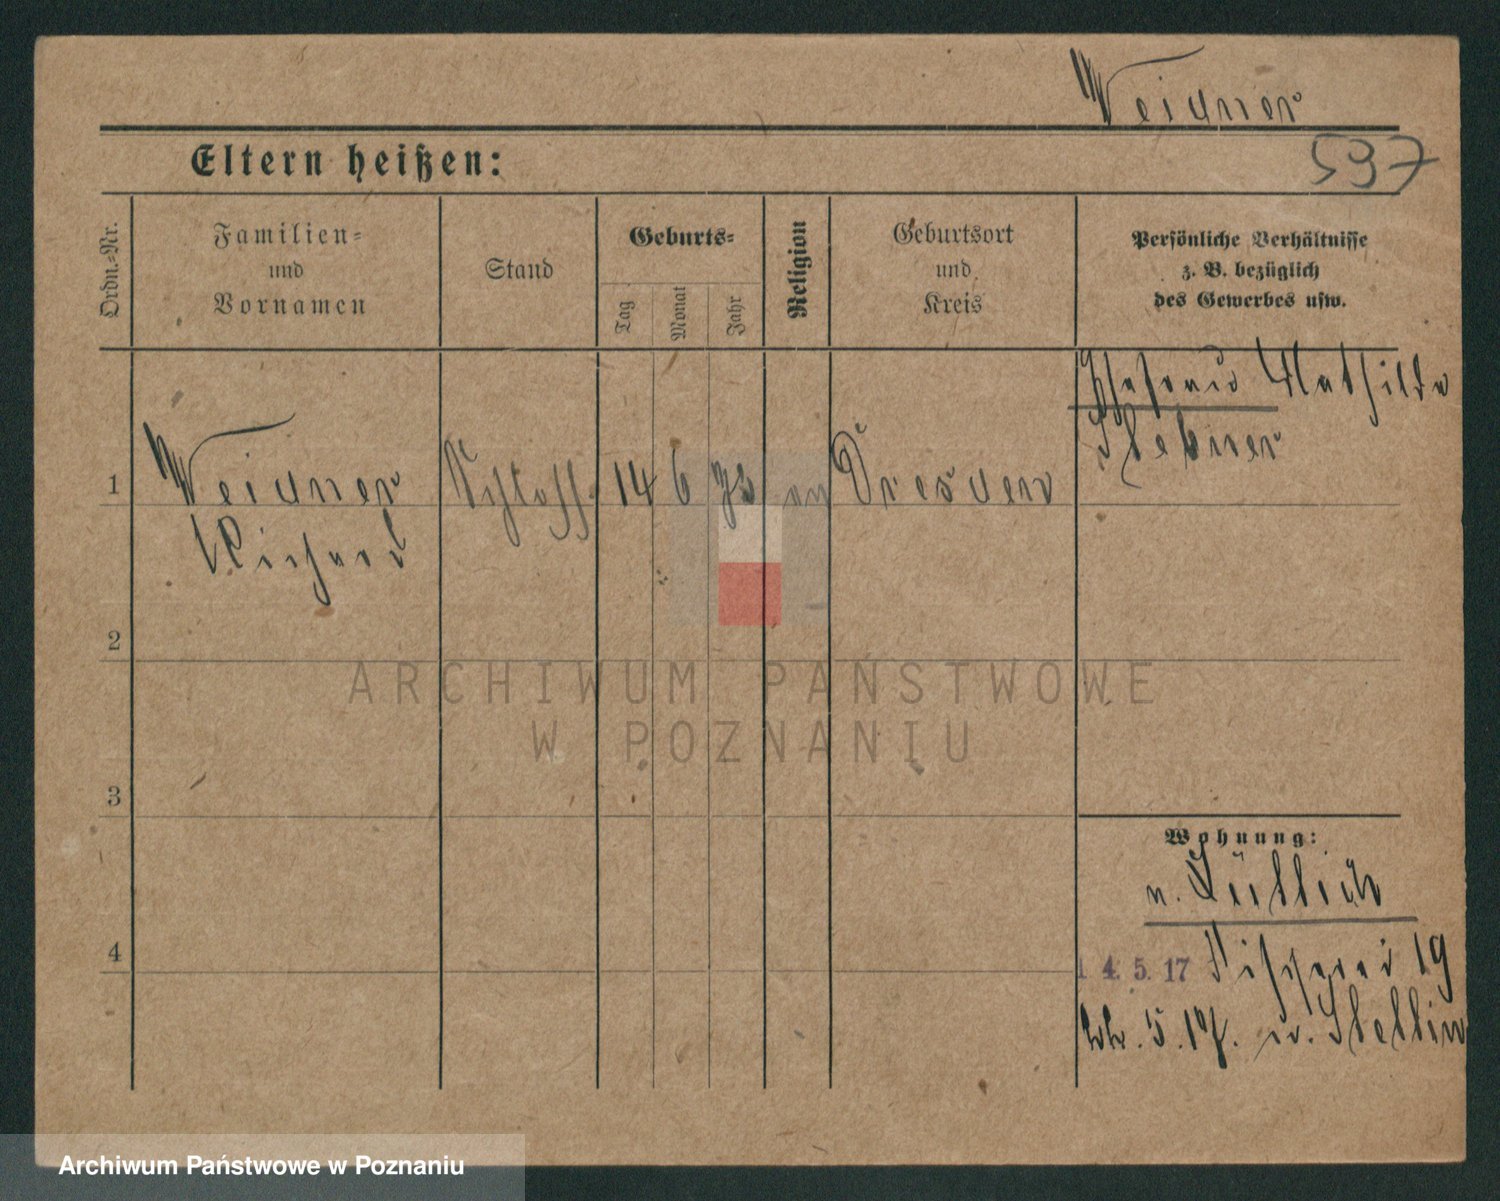 Weidner
597
Eltern heißen:
Ordn.-Nr.
Familien-
und
Vornamen
Stand
Geburts-
Tag
Monat
Jahr
Religion
Geburtsort
und
Kreis
Persönliche Verhältnisse
z. B. bezüglich
des Gewerbes usw.
Mathilde
1
Weidner
14
6
Dresden
Richard
2
ARCHIWUM PAŃSTWOWE
W POZNANIU
3
Wohnung:
4
14. 5. 17 Fischerei 19
5. 17. Stettin
Archiwum Państwowe w Poznaniu